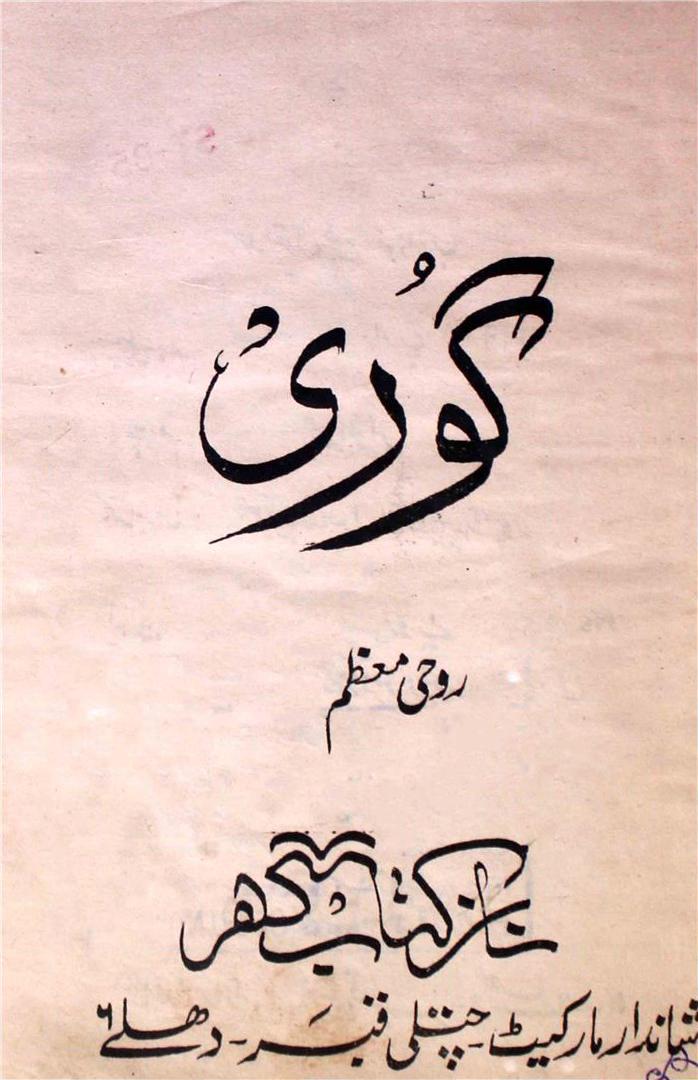 گوُری
روحی معظم
ناز کتاب گھر
شاندار مارکیٹ - چتلی قبَر - دھلی ۶